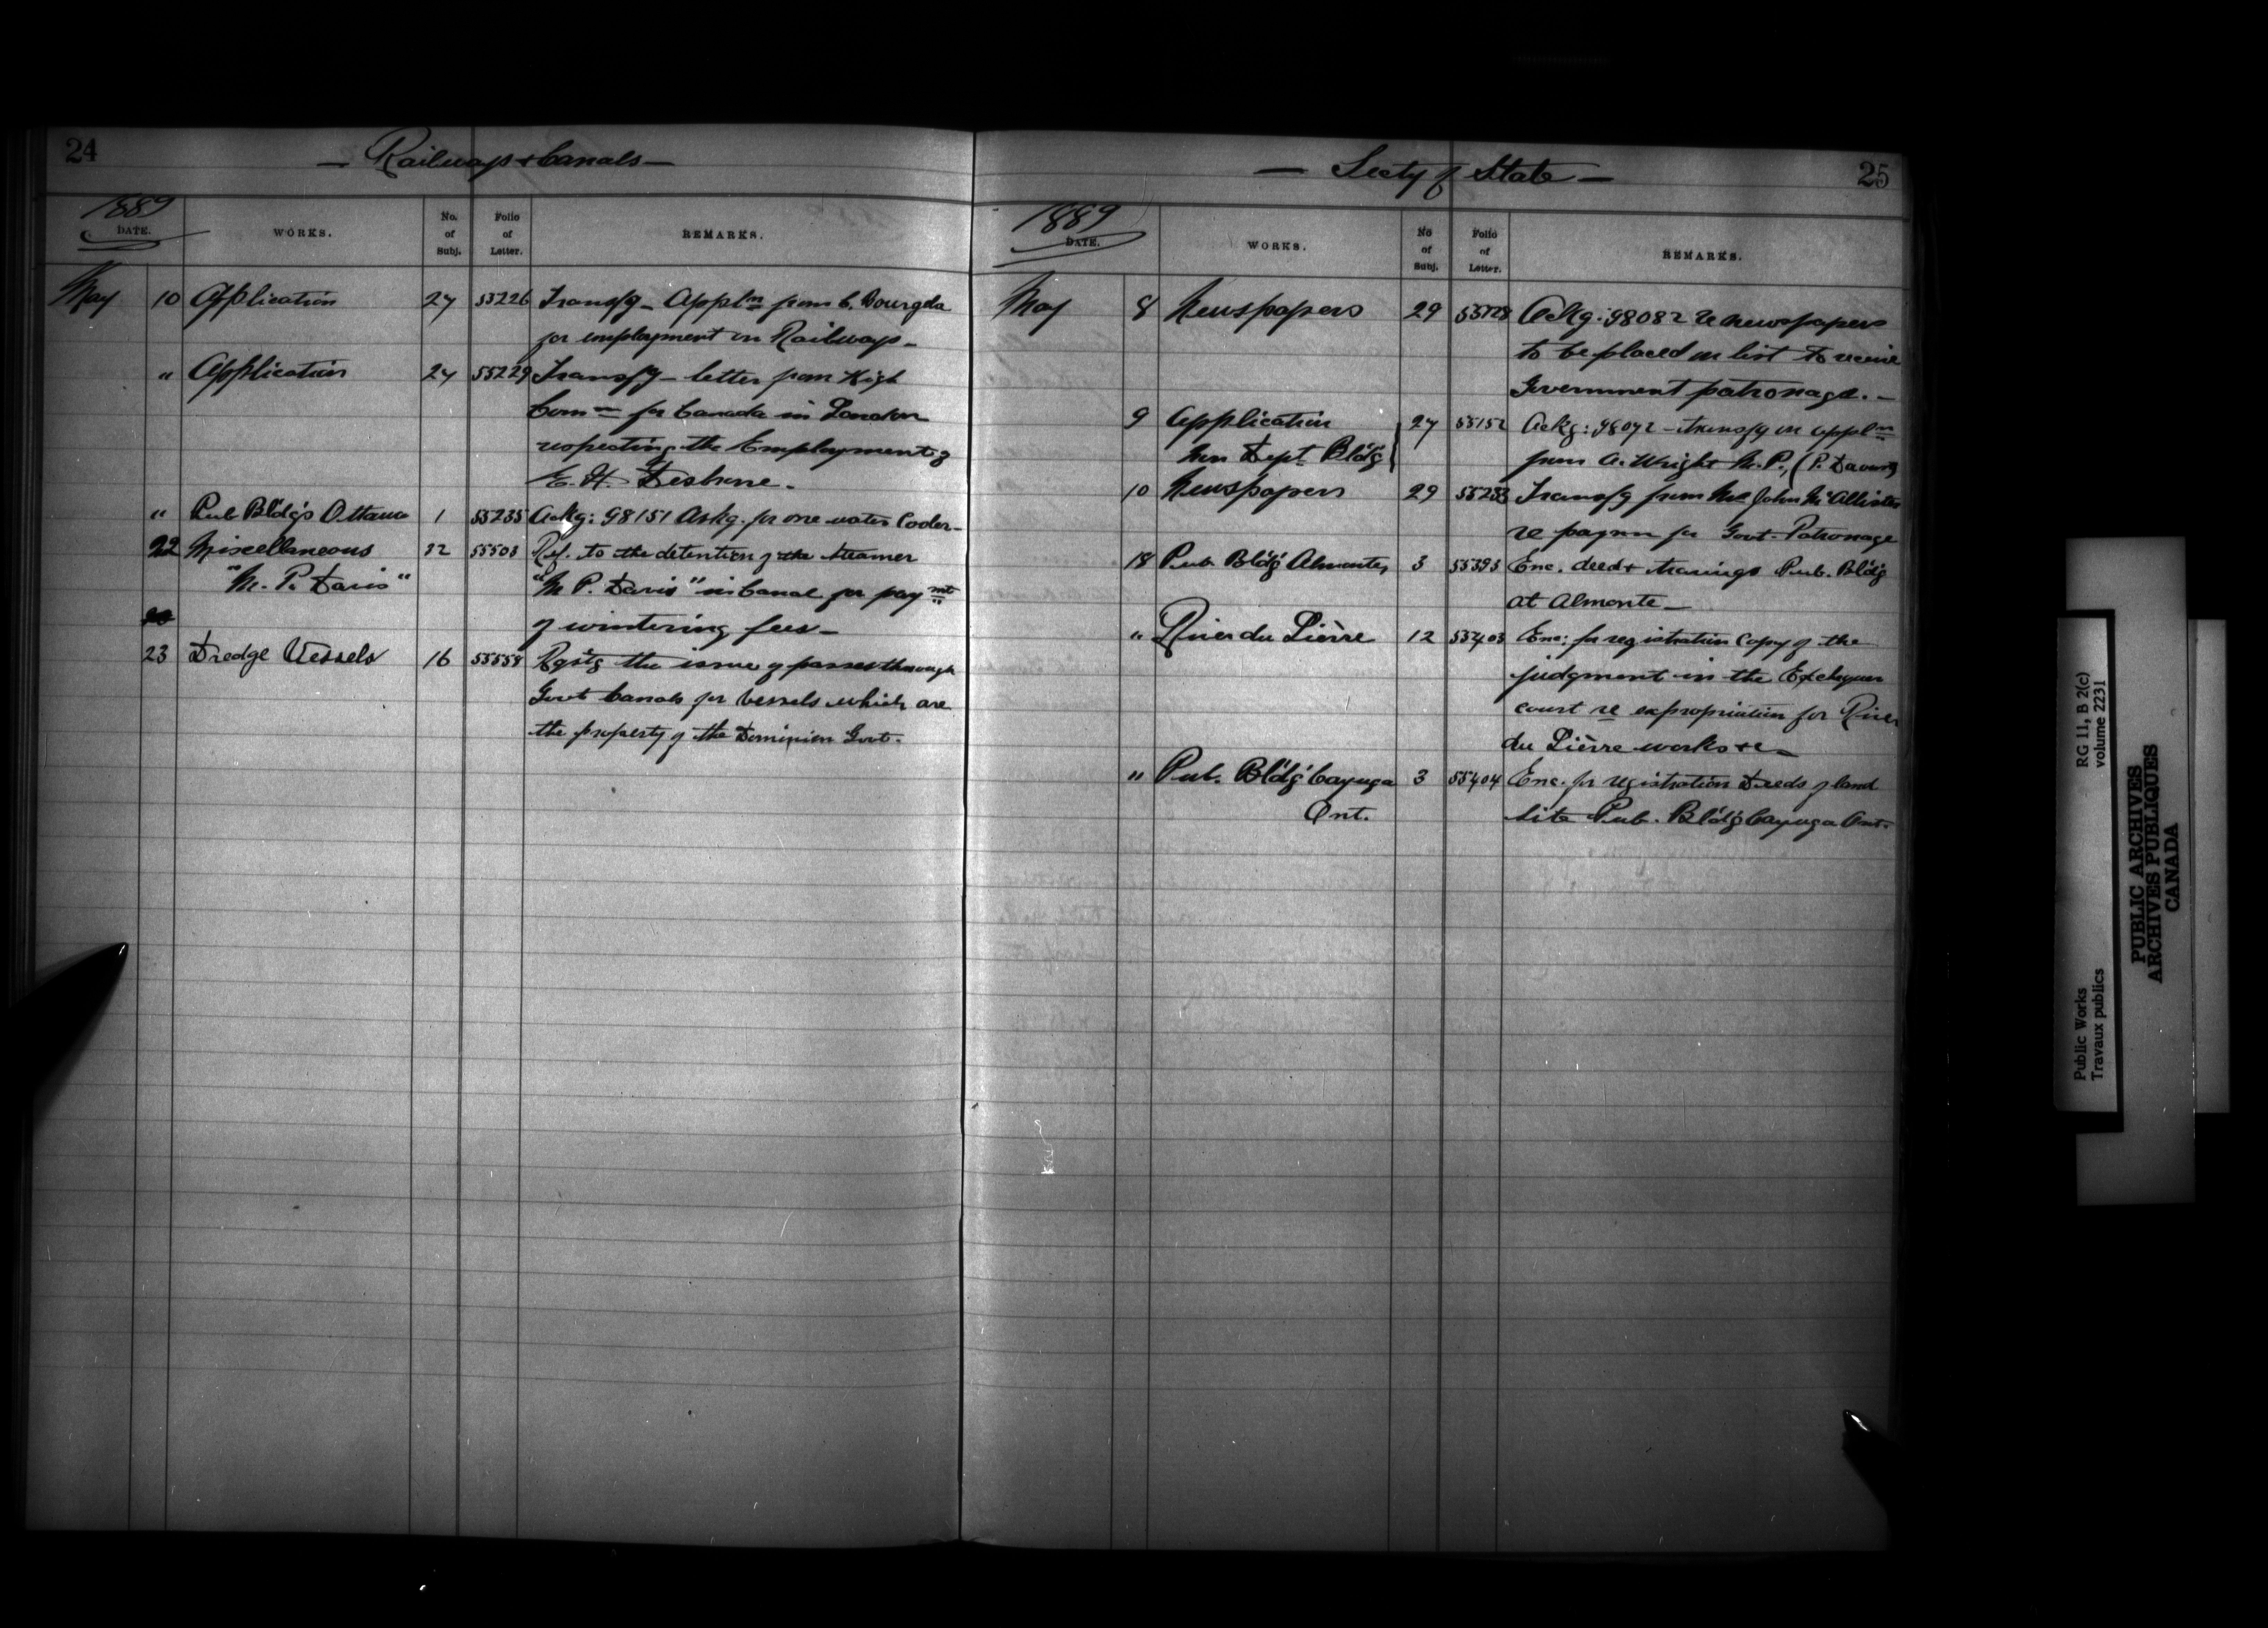 24
— Railways & Canals —
1889
DATE.
WORKS.
No. of Subj.
Folio of Letter.
REMARKS.
May 10 Application 27 55226 Transfg - Appln from C. Bourgela
for employment on Railways -
" Application 27 55229 Transfg - letter from High
Comr for Canada in London
respecting the Employment of
E. H.
" Pub Bldg's Ottawa 1 55235 Ackg: 98151 Askg. for one water Cooler -
22 Miscellaneous 32 55503 Ref. to the detention of the steamer
"M. P. Davis" "M. P. Davis" in Canal for paymt
of wintering fees -
23 Dredge Vessels 16 55559 Rqstg the issue of passes through
Govt Canals for Vessels which are
the property of the Dominion Govt.
25
— Secty of State —
1889
DATE.
WORKS.
No of Subj.
Folio of Letter.
REMARKS.
May 8 Newspapers 29 Ackg: 98082 re newspapers
to be placed on list to receive
Government patronage. -
9 Application 27 55152 Ackg: 98072 - transfg an appln
New Dept Bldg from A. Wright M.P.,
10 Newspapers 29 55233 Transfg from John McAllister
re for Govt. Patronage
18 Pub. Bldg Almonte, 3 55395 Enc. deed & tracings Pub. Bldg
at Almonte -
" River du Lièvre 12 55403 Enc: for registration Copy of the
judgment in the Exchequer
court re expropriation for River
du Lièvre works &c -
" Pub. Bldg Cayuga 3 55404 Enc. for registration Deeds of land
Ont. site Pub. Bldg Cayuga Ont.
Public Works
Travaux publics
RG 11, B 2(c)
volume 2231
PUBLIC ARCHIVES
ARCHIVES PUBLIQUES
CANADA